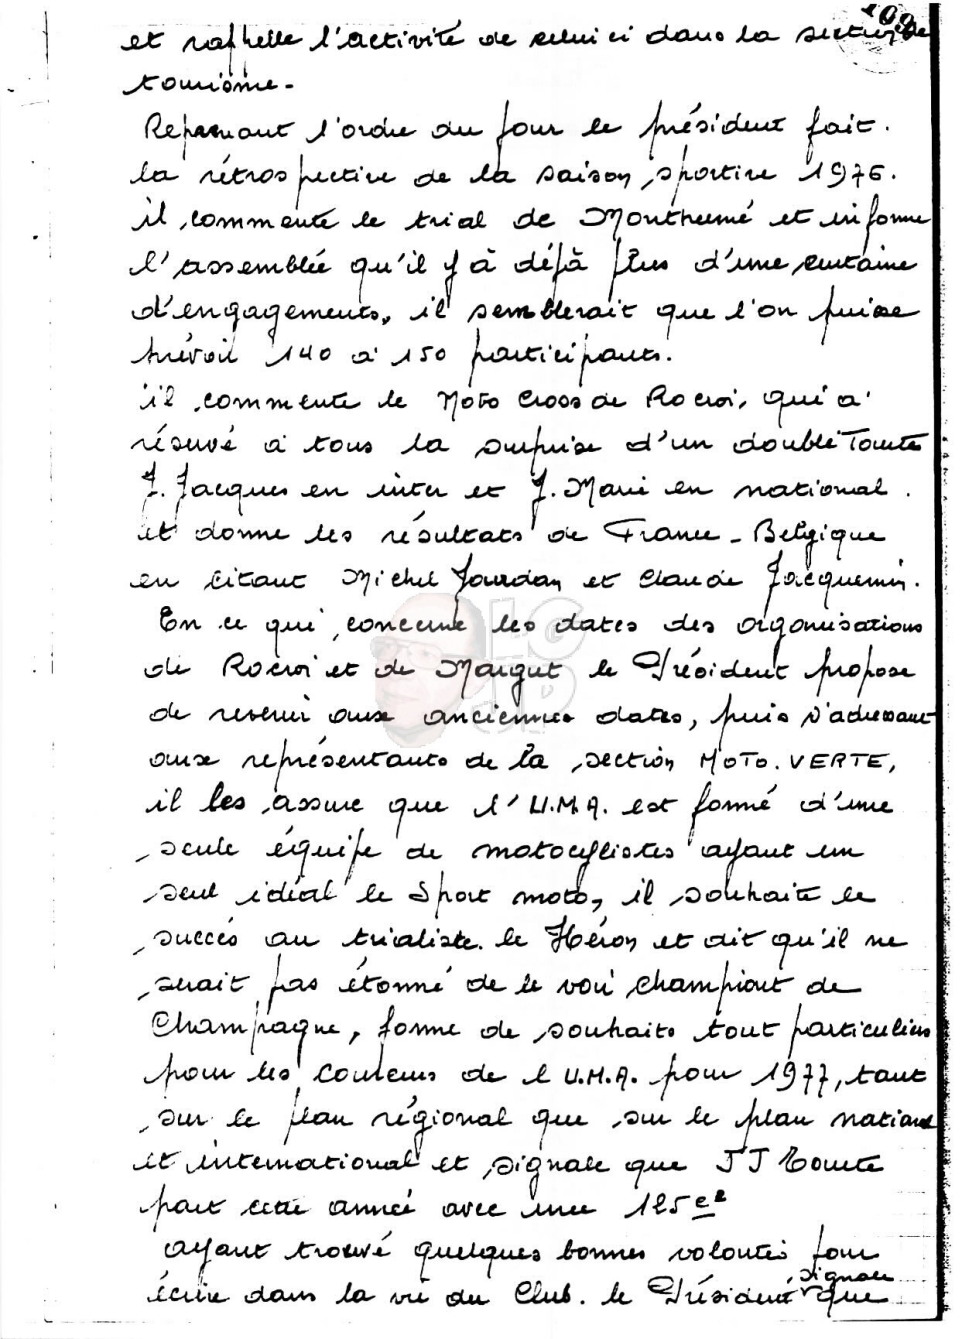 109
et raphelle l'activité de celui ci dans la section de
tourisme.
Reprenant l'ordre du jour le président fait.
la rétrospective de la saison sportive 1976.
il commente le trial de Monthermé et informe
l'assemblée qu'il y à déjà plus d'une centaine
d'engagements, il semblerait que l'on puisse
prévoir 140 à 150 participants.
il commente le Moto Cross de Rocroi, qui a
réservé à tous la surprise d'un doublé Tourte
J. Jacques en inter et J. Marie en national.
et donne les résultats de France - Belgique
en citant Michel Jourdan et Claude Jacquemin.
En ce qui concerne les dates des organisations
de Rocroi et de Margut le Président propose
de revenir aux anciennes dates, puis s'adressant
aux représentants de la section MOTO. VERTE,
il les assure que l'U.M.A. est formé d'une
seule équipe de motocyclistes ayant un
seul idéal le Sport moto, il souhaite le
succès au trialiste. le Héron et dit qu'il ne
serait pas étonné de le voir champion de
Champagne, forme de souhaits tout particuliers
pour les couleurs de l U.M.A. pour 1977, tant
sur le plan régional que sur le plan national
et international et signale que JJ Tourte
part cette année avec une 125 c²
ayant trouvé quelques bonnes volontés pour
écrire dans la vie du Club. le Président signale que